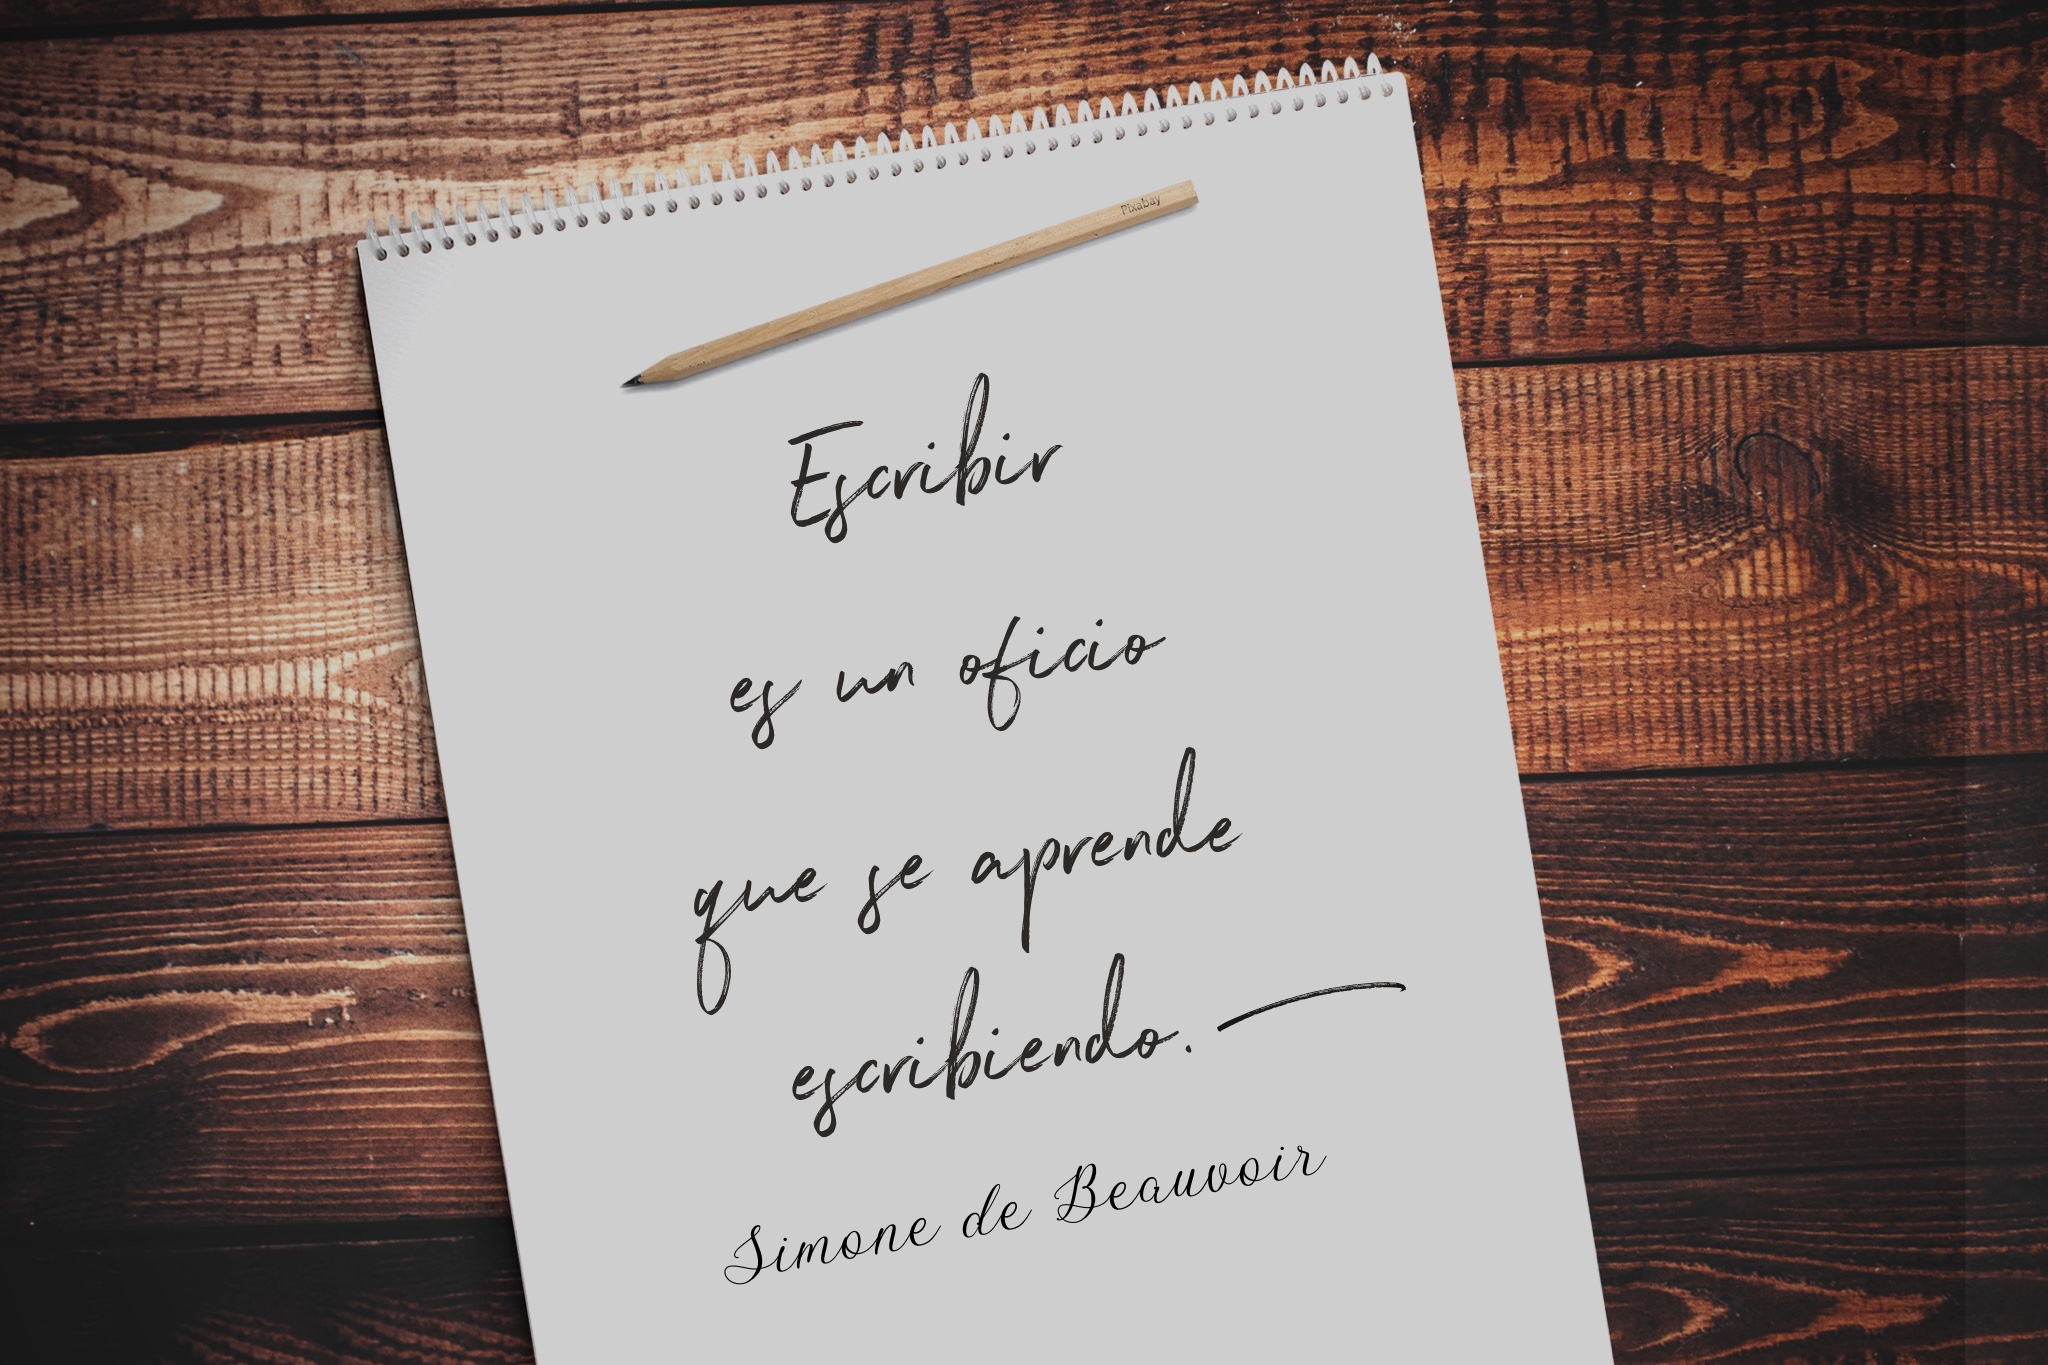 Pixabay
Escribir
es un oficio
que se aprende
escribiendo.
Simone de Beauvoir